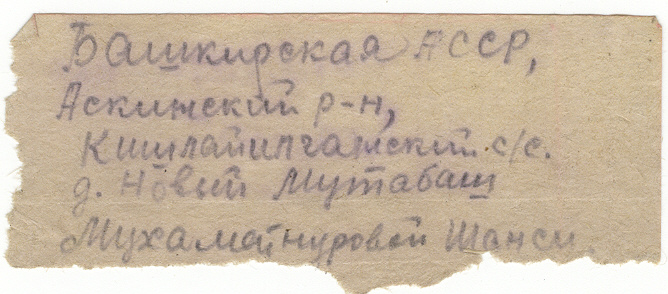 Башкирская АССР,
Аскинский р-н,
Кишлайилгажский с/с.
д. Новый Муташ​баш
Мухамайнуровой Шамси